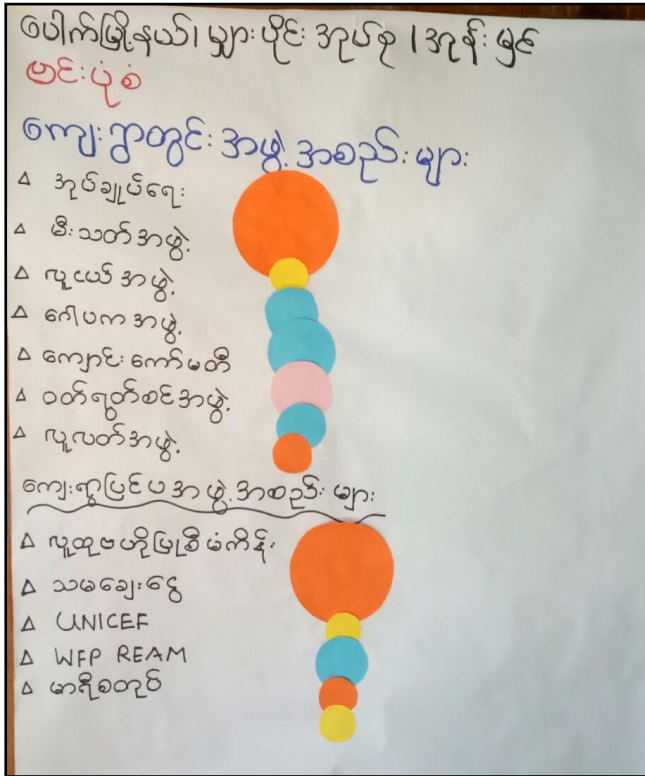 ပေါက်မြို့နယ်၊ မျှားပိုင်းအုပ်စု ၊ အုန်းမှင်
ဗင်းပုံစံ
ကျေးရွာတွင်း အဖွဲ့အစည်းများ
အုပ်ချုပ်ရေး
မီးသတ်အဖွဲ့
လူငယ်အဖွဲ့
ဂေါပကအဖွဲ့
ကျောင်းကော်မတီ
ဝတ်ရွတ်စင်အဖွဲ့
လူလတ်အဖွဲ့
ကျေးရွာပြင်ပအဖွဲ့အစည်းများ
လူထုဗဟိုပြုစီမံကိန်း
သမချေးငွေ
UNICEF
WFP REAM
မာရီစတုပ်